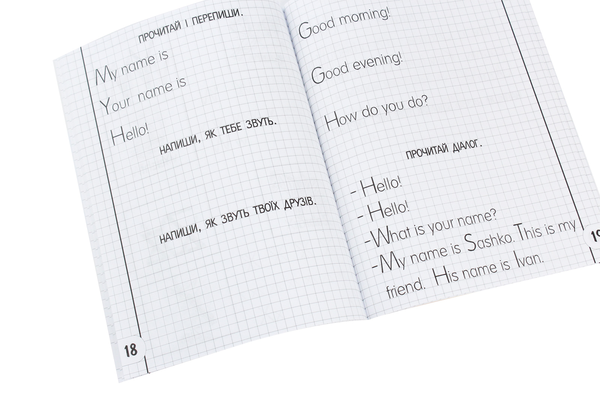 ПРОЧИТАЙ І ПЕРЕПИШИ.
My name is
Your name is
Hello!
НАПИШИ, ЯК ТЕБЕ ЗВУТЬ.
НАПИШИ, ЯК ЗВУТЬ ТВОЇХ ДРУЗІВ.
18
Good morning!
Good evening!
How do you do?
ПРОЧИТАЙ ДІАЛОГ.
- Hello!
- Hello!
-What is your name?
-My name is Sashko. This is my
friend. His name is Ivan.